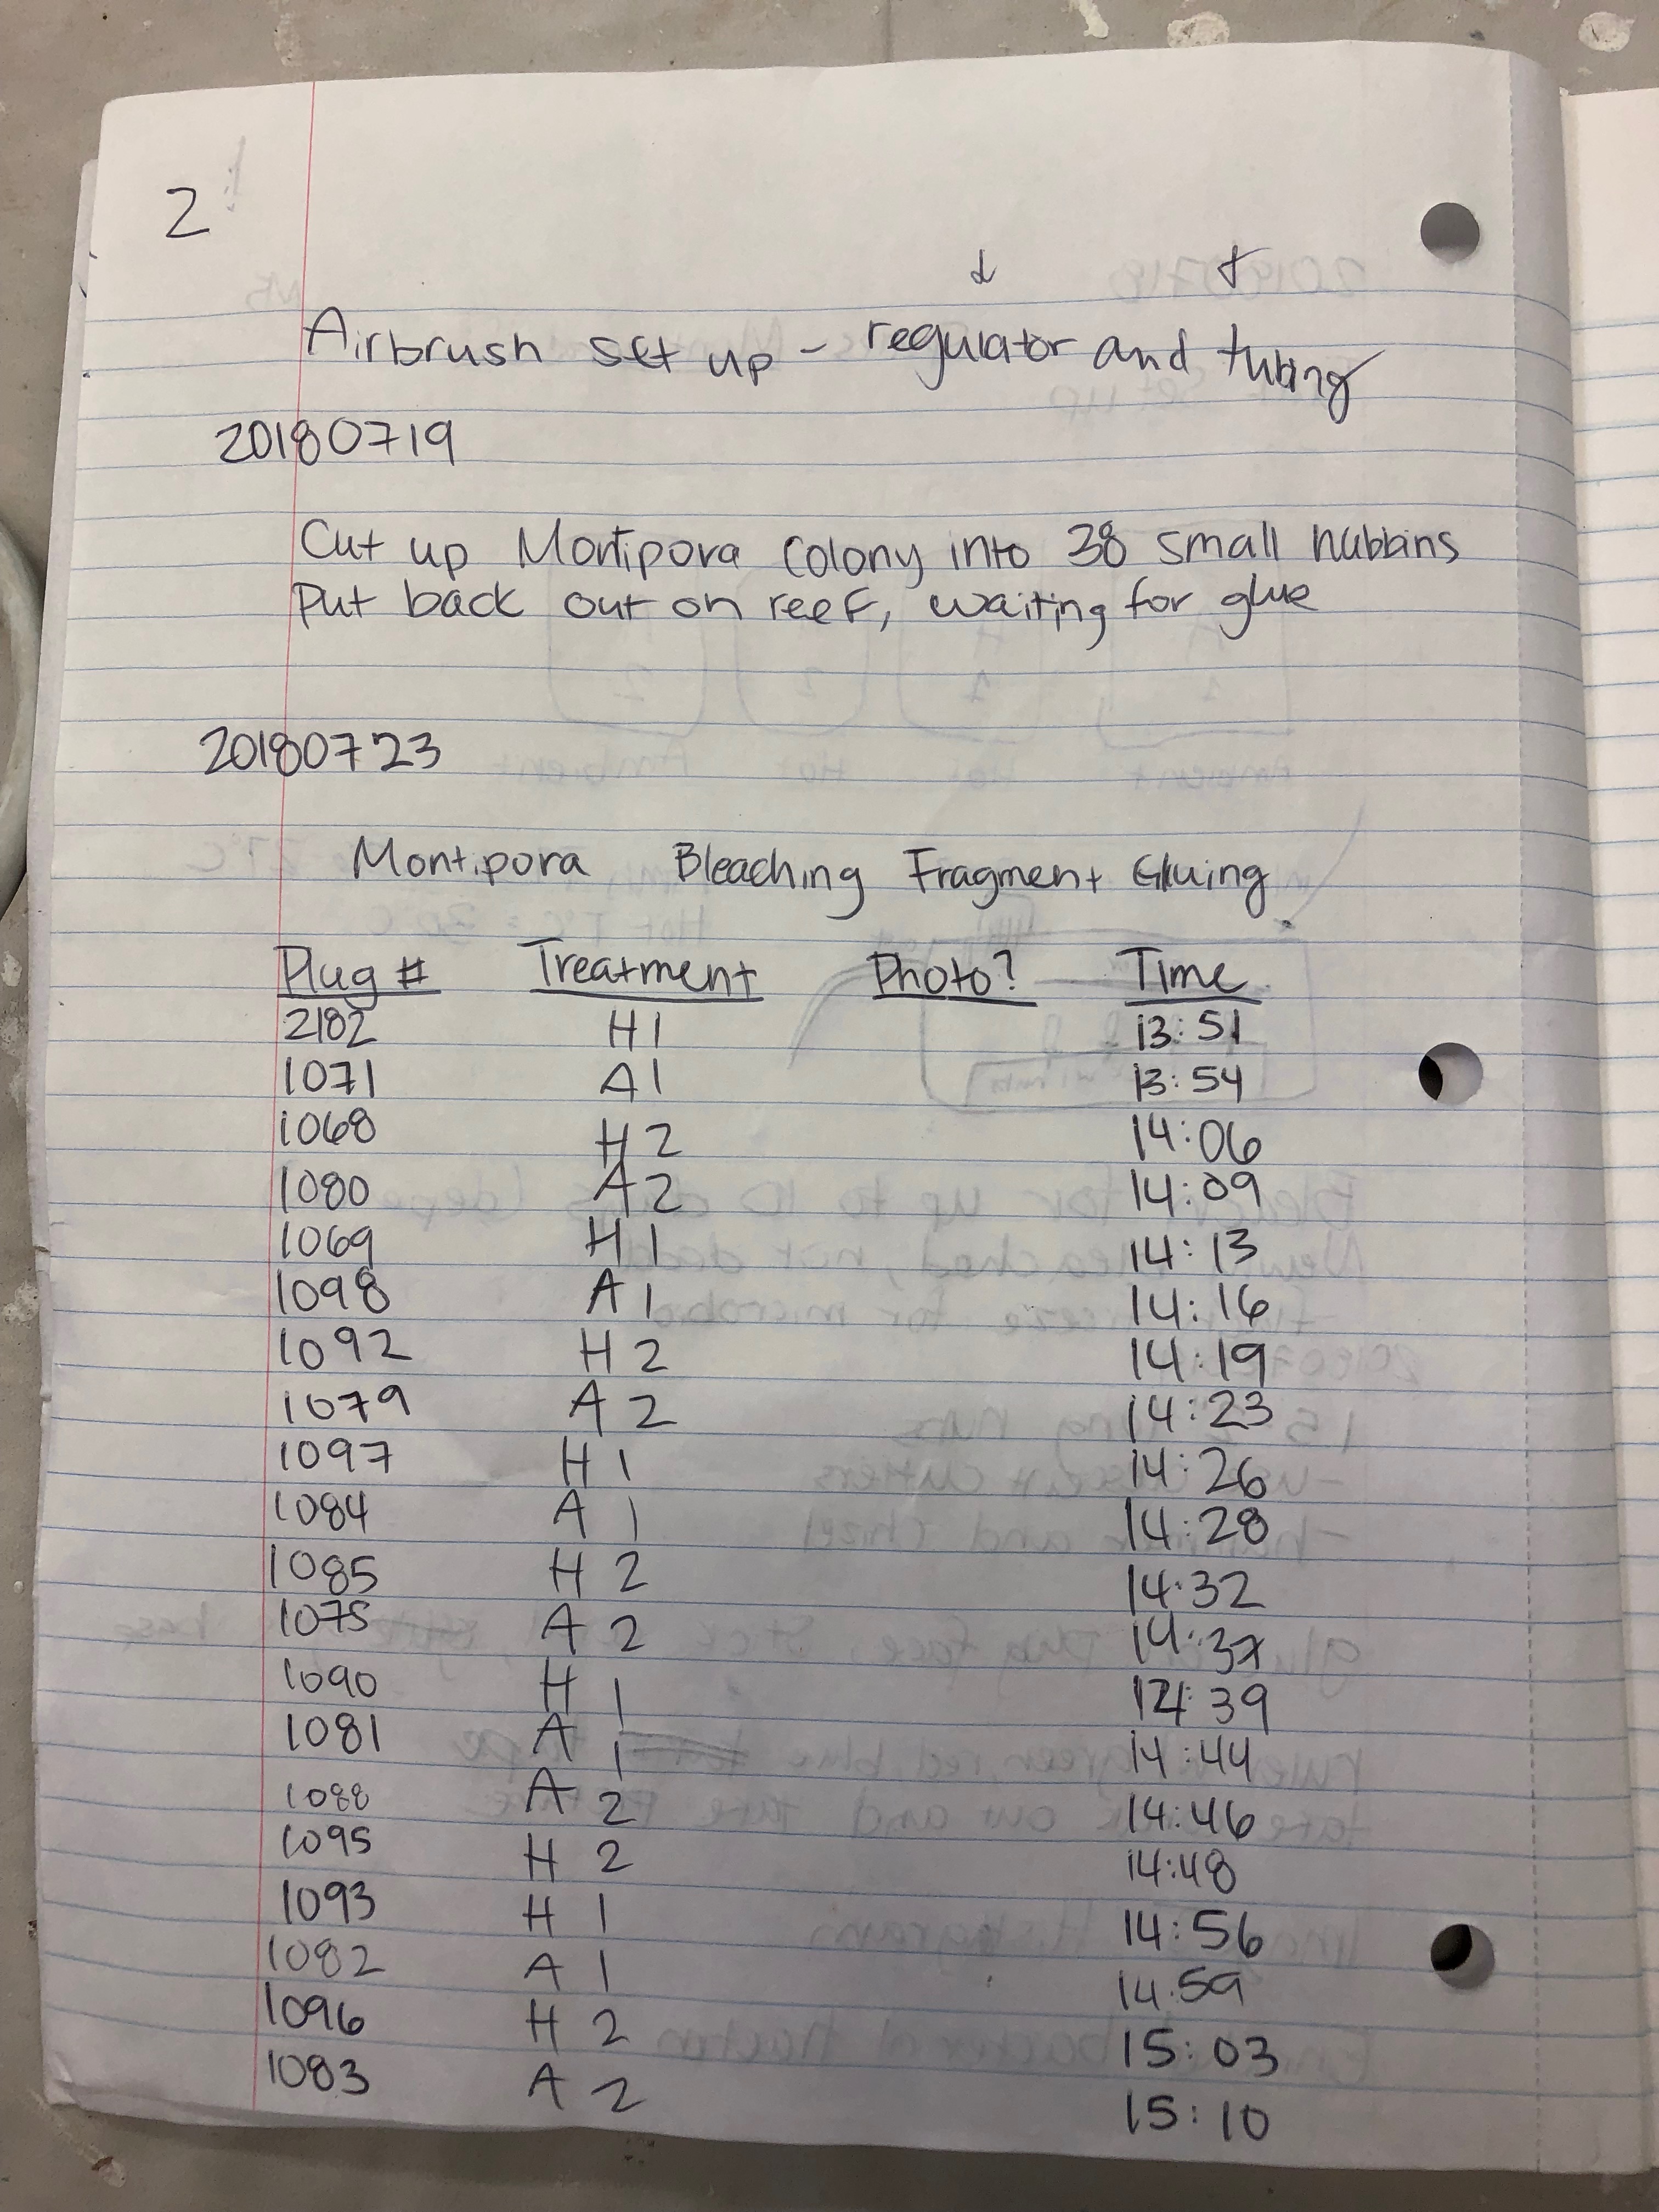 2
↓ ↓
Airbrush set up - regulator and tubing
20180719
Cut up Montipora Colony into 38 small nubbins
Put back out on reef, waiting for glue
20180723
Montipora Bleaching Fragment Gluing
Plug # Treatment Photo? Time
2182 H1 13:51
1071 A1 13:54
1068 H2 14:06
1080 A2 14:09
1069 H1 14:13
1098 A1 14:16
1092 H2 14:19
1079 A2 14:23
1097 H1 14:26
1084 A1 14:28
1085 H2 14:32
1075 A2 14:37
1090 H1 14:39
1081 A1 14:44
1088 A2 14:46
1095 H2 14:48
1093 H1 14:56
1082 A1 14:59
1096 H2 15:03
1083 A2 15:10